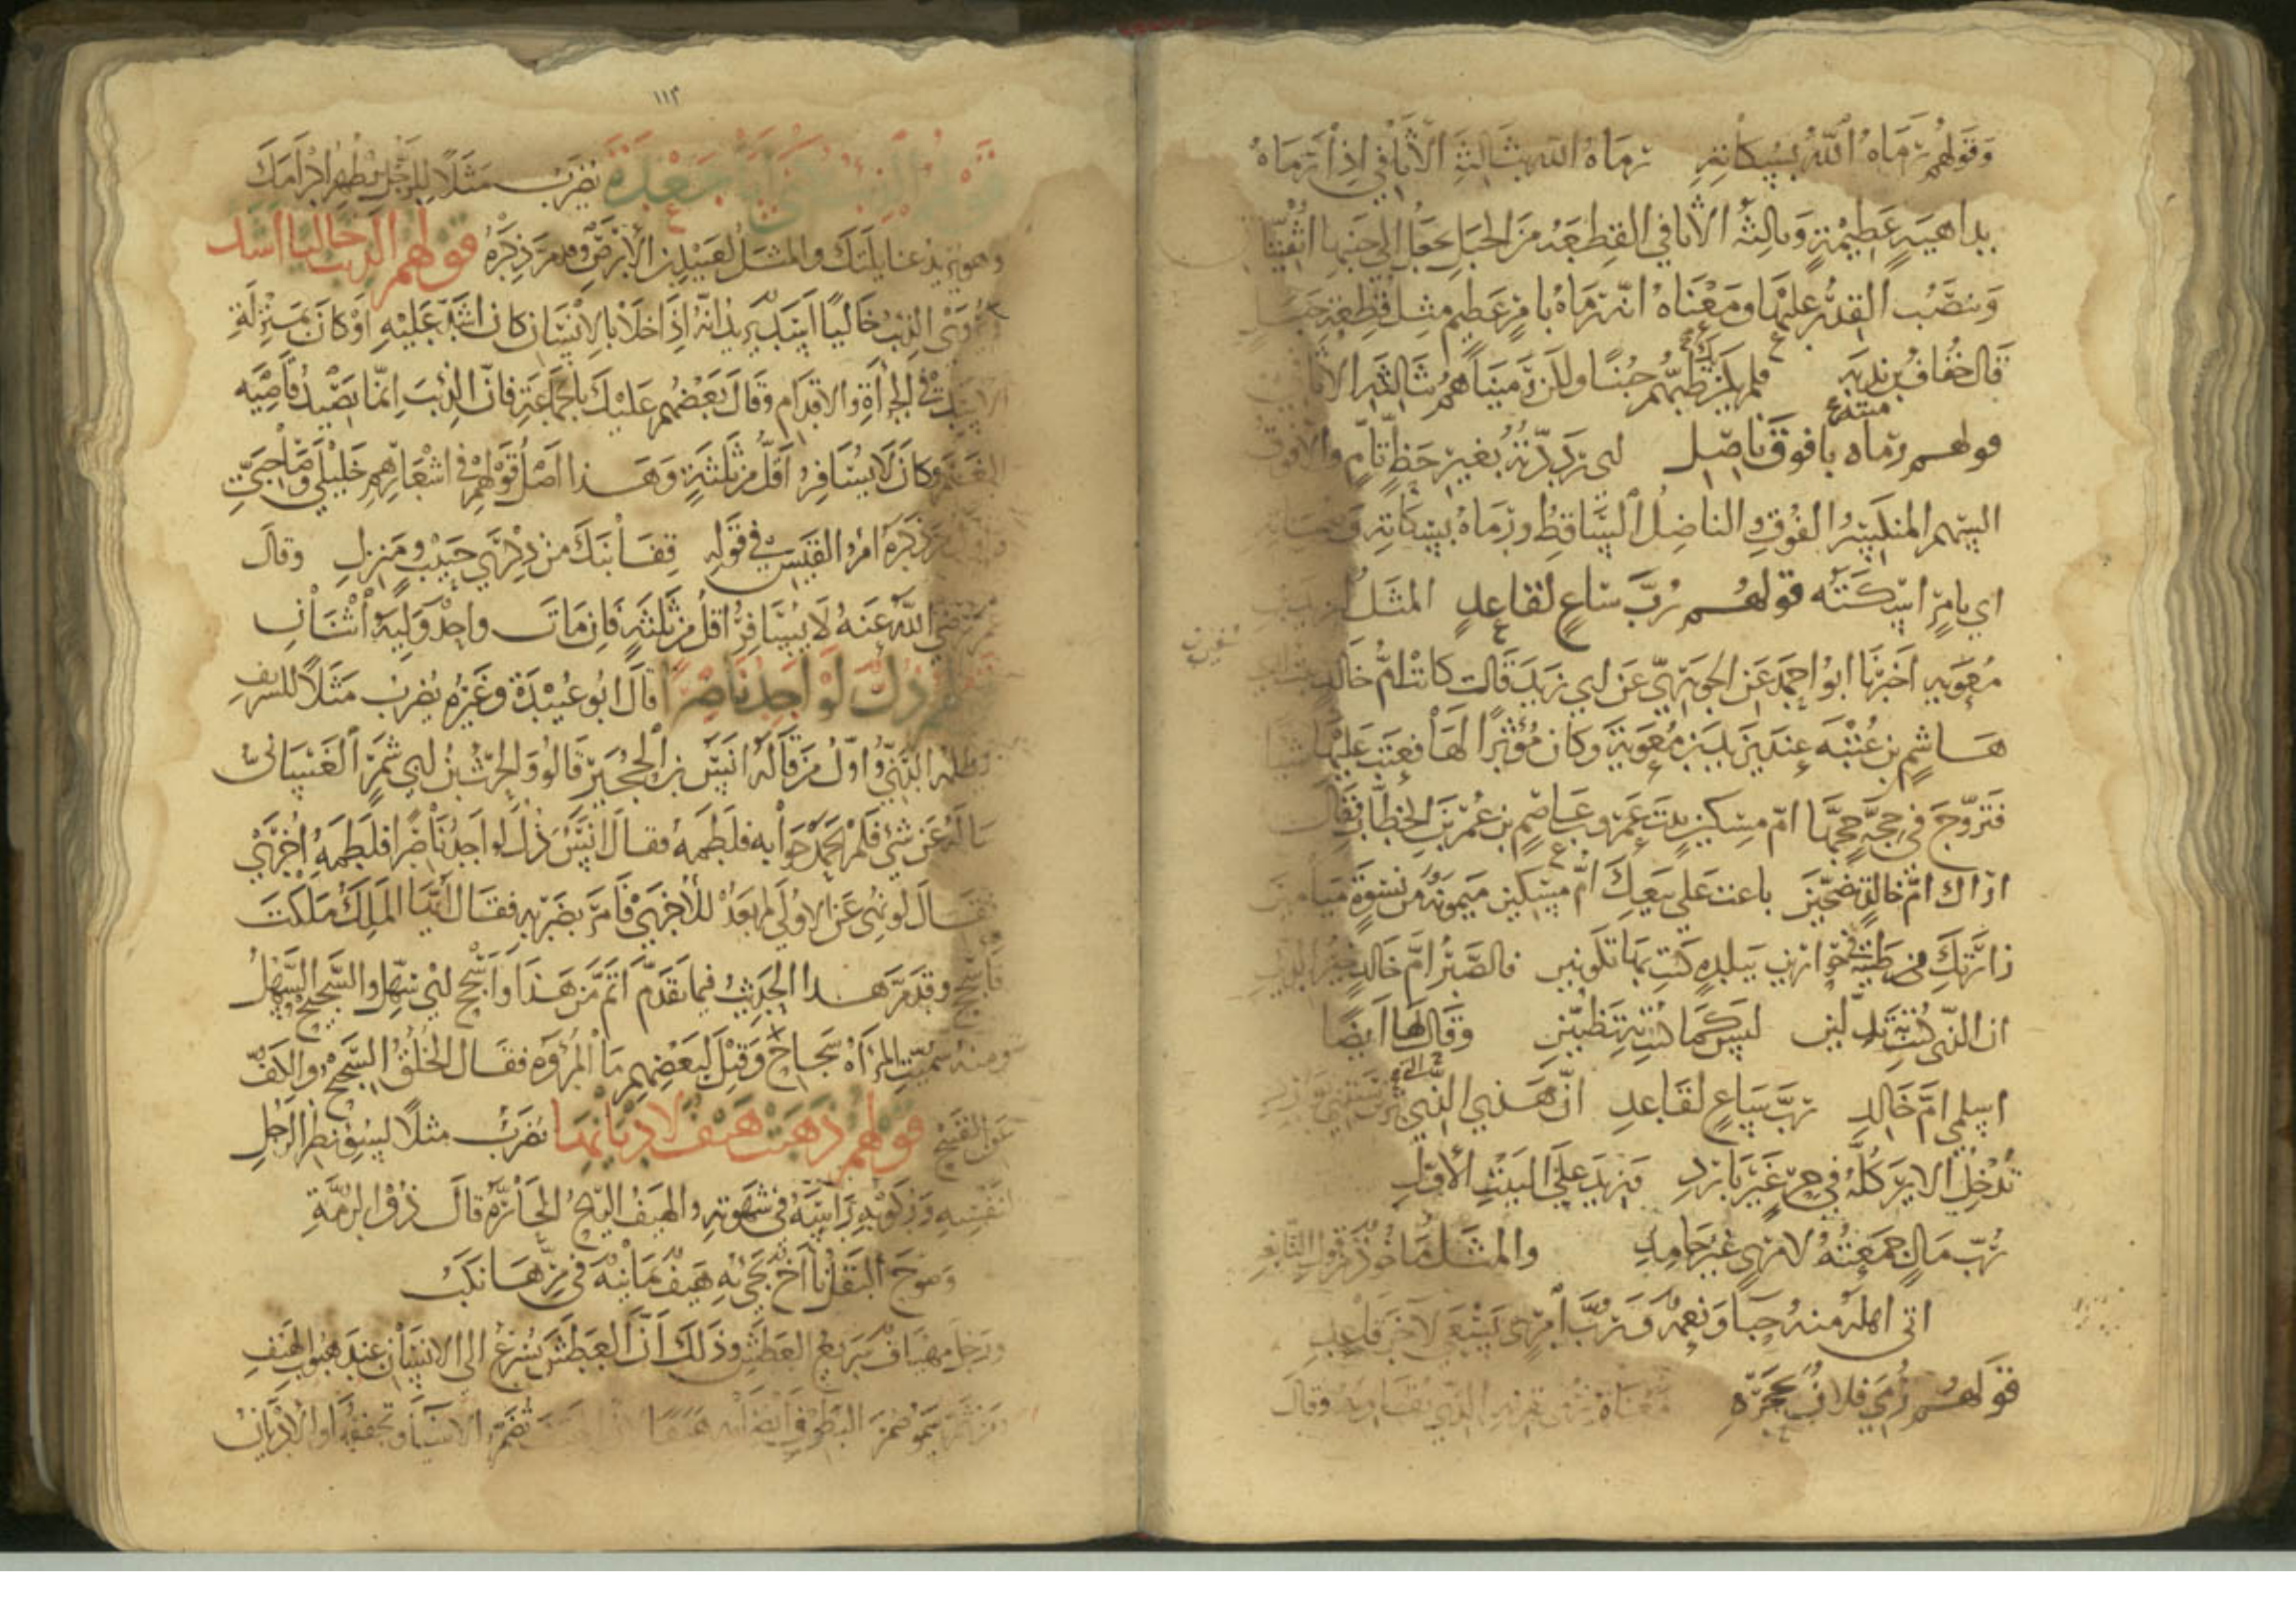 وقولهم رماه الله بسكاته رماه الله بثالثة الأثافي اذا رماه
بداهية عظيمة وثالثة الأثافي القطعة من الجبل يجعل الى جنبها اثفيتان
وتنصب القدر عليها ومعناه انه رماه بامر عظيم مثل قطعة جبل
قال خفاف بن ندبة فلم يكن طبهم جبنا ولكن رميناهم بثالثة الأثافي
قولهم رماه بافوق ناصل اى رددته بغير حظ تام والافوق
السهم المنكسر الفوق والناصل الساقط ورماه بسكاته
اي بامر اسكته قولهم رب ساع لقاعد المثل
معوية اخبرنا ابو احمد عن الجوهري عن ابي زيد قالت كانت ام خالد بنت ابي
هاشم بن عتبة عند يزيد بن معوية وكان مؤثرا لها فعتب عليها شيا
فتزوج في حجة حجها ام مسكين بنت عمرو عاصم بن عمر بن الخطاب فقال
اراك ام خالد تضجين باعت على بيعك ام مسكين ميمونة من نسوة ميامين
زارتك من طيبة في حوارين ببلدة كنت بها تكونين فالصبر ام خالد خير الدين
ان التي كنت تدلين ليس كما كنت به تظنين وقال لها ايضا
اسلمي ام خالد رب ساع لقاعد ان هذي التي
تدخل الاير كله في حر غير بارد فيزيد على البيت الأول
رب مال جمعته لامرى غير حامد والمثل ماخوذ من قول النابغة
اتى اهله منه حبا ونعمة ورب امرى يسعى لآخر قاعد
قولهم رمي فلان بحجره معناه وقال
١١٣
قولهم الذئب يكنى ابا جعدة يضرب مثلا للرجل يظهر اكرامك
وهو يريد غائلتك والمثل لعبيد بن الأبرص وقد مر ذكره قولهم الذيب خاليا اسد
ويروى الذئب خاليا اسد يريد انه اذا خلا بالانسان كان اشد عليه او كان بمنزلة
الأسد في الجرأة والاقدام وقال بعضهم عليك بالجماعة فان الذئب انما يصيد قاصية
الغنم وكان لا يسافر اقل من ثلثة وهذا اصل قولهم في اشعارهم خليلي وصاحبي
ذكره امرؤ القيس في قوله قفا نبك من ذكرى حبيب ومنزل وقال
عمر رضي الله عنه لا يسافر اقل من ثلثة فان مات واحد وليه اثنان
قولهم ذل لو اجد ناصرا قال ابو عبيدة وغيره يضرب مثلا للشريف
يظلمه الدني واول من قاله انس بن الحجير قالوا والحرث بن ابي شمر الغساني
ساله عن شي فلم يحمد جوابه فلطمه فقال انس ذل لو اجد ناصرا فلطمه اخرى
فقال لو نهي عن الاولى لم يعد للأخرى فامر بضربه فقال ايها الملك ملكت
فأسجح وقد مر هذا الحديث فيما تقدم اتم من هذا واسجح اي سهل والسجيح السهل
ومنه سميت المرأة سجاح وقيل لبعضهم ما المروة فقال الخلق السجيح والكف
عن القبيح قولهم ذهبت هيف لاديانها يضرب مثلا لسوء نظر الرجل
لنفسه وركوبه راسه في شهوته والهيف الريح الحارة قال ذو الرمة
وصوح البقل نأاج تجيء به هيف يمانية في مرها نكب
ورجل مهياف سريع العطش وذلك ان العطش يسرع الى الانسان عند هبوب الهيف
تضمر الاشيا وتجففها والاديان